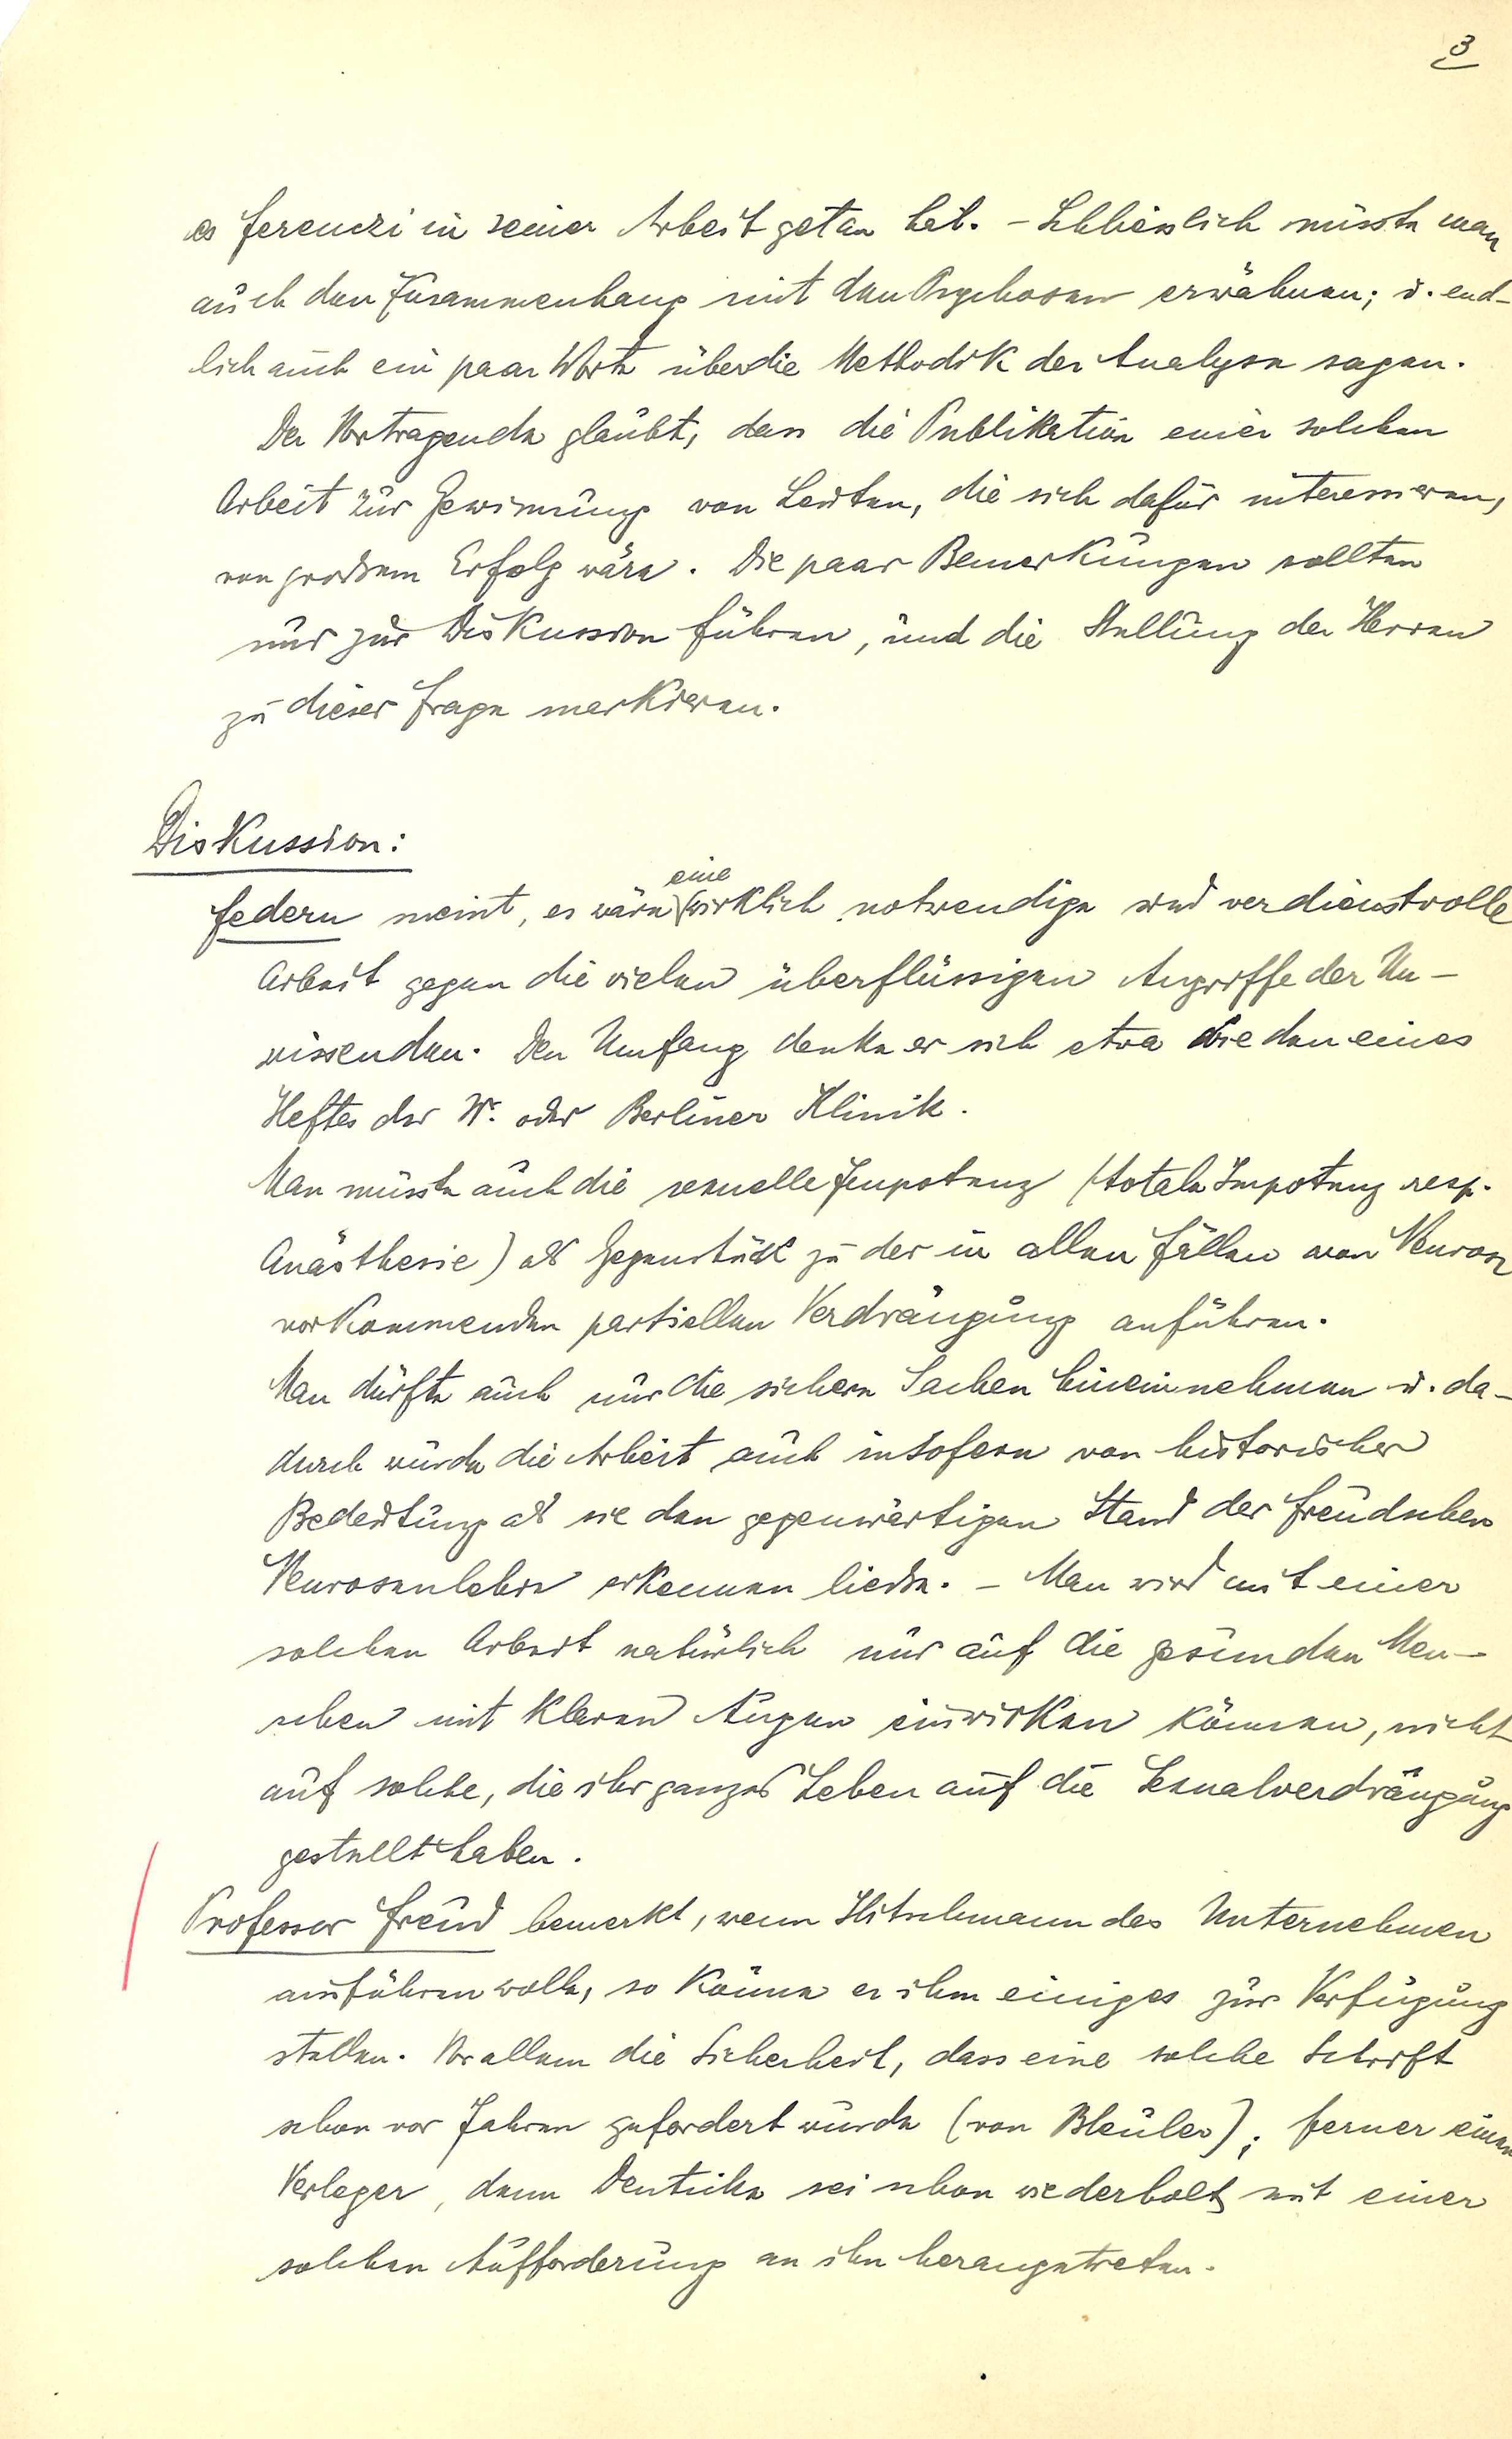 3
es Ferenczi in seiner Arbeit getan hat. – Schliesslich müsste man
auch den Zusammenhang mit den Psychosen erwähnen; u. end-
lich auch ein paar Worte über die Methodik der Analyse sagen.
Der Vortragende glaubt, dass die Publikation einer solchen
Arbeit zur Gewinnung von Leuten, die sich dafür interessieren,
von großem Erfolg wäre. Die paar Bemerkungen sollten
nur zur Diskussion führen, und die Stellung der Herren
zu dieser Frage markieren.
Diskussion:
eine
Federn meint, es wäre wirklich notwendige und verdienstvolle
Arbeit gegen die vielen überflüssigen Angriffe der Un-
wissenden. Den Umfang denke er sich etwa wie den eines
Heftes der W. oder Berliner Klinik.
Man müsste auch die sexuelle Impotenz (totale Impotenz resp.
Anästhesie) als Gegenstück zu der in allen Fällen von Neurose
vorkommenden partiellen Verdrängung anführen.
Man dürfte auch nur die sichern Sachen hineinnehmen u. da-
durch würde die Arbeit auch insofern von historischer
Bedeutung als sie den gegenwärtigen Stand der Freudschen
Neurosenlehre erkennen ließe. – Man wird mit einer
solchen Arbeit natürlich nur auf die gesunden Men-
schen mit klaren Augen einwirken können, nicht
auf solche, die ihr ganzes Leben auf die Sexualverdrängung
gestellt haben.
Professor Freud bemerkt, wenn Hitschmann das Unternehmen
ausführen wolle, so könne er ihm einiges zur Verfügung
stellen. Vor allem die Sicherheit, dass eine solche Schrift
schon vor Jahren gefordert wurde (von Bleuler); ferner einen
Verleger, denn Deuticke sei schon wiederholt mit einer
solchen Aufforderung an ihn herangetreten.